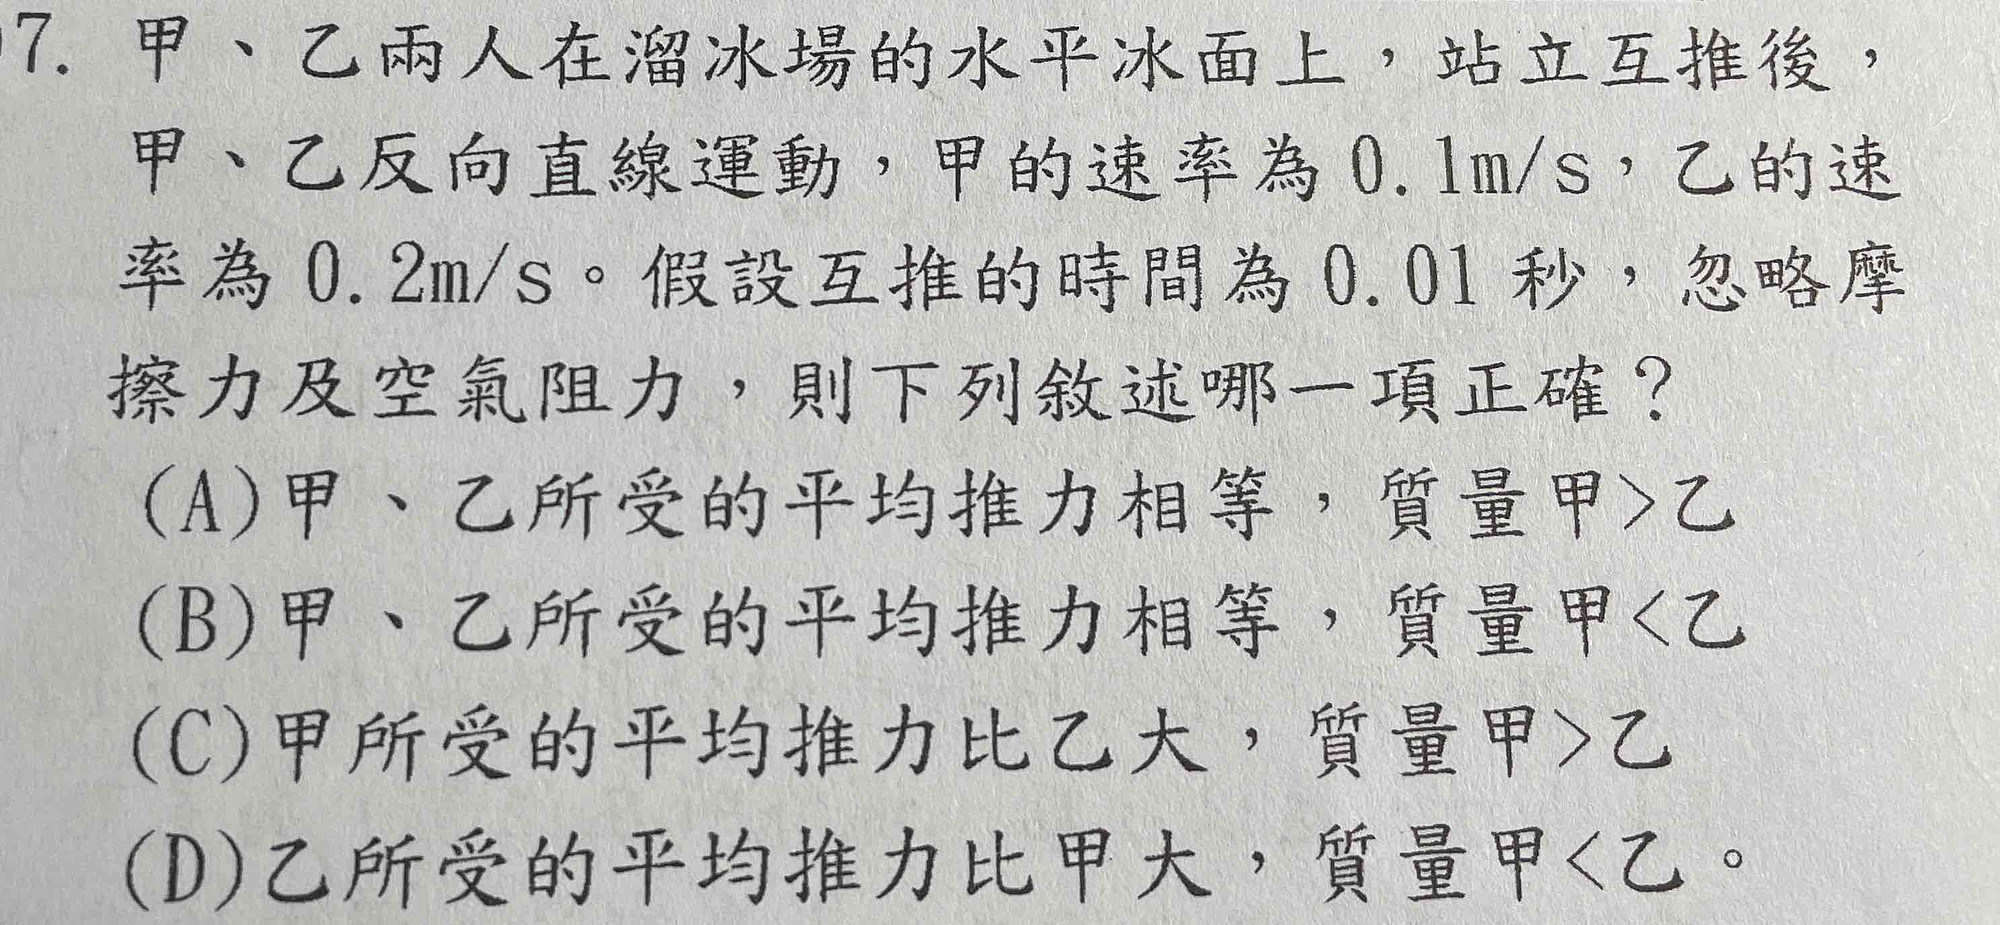 7. 甲、乙兩人在溜冰場的水平冰面上，站立互推後，
甲、乙反向直線運動，甲的速率為 0.1m/s，乙的速
率為 0.2m/s。假設互推的時間為 0.01 秒，忽略摩
擦力及空氣阻力，則下列敘述哪一項正確？
(A)甲、乙所受的平均推力相等，質量甲>乙
(B)甲、乙所受的平均推力相等，質量甲<乙
(C)甲所受的平均推力比乙大，質量甲>乙
(D)乙所受的平均推力比甲大，質量甲<乙。